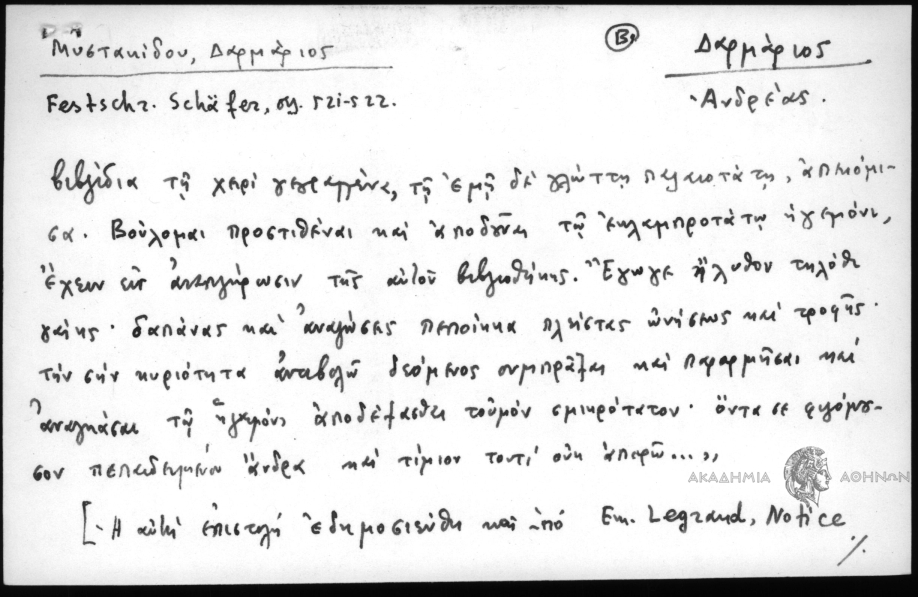 Μυστακίδου, Δαρμάριος
Β.
Δαρμάριος
Festschr. Schäfer, σγ. 521-522.
Ἀνδρέας.
βιβλίδια τῇ χειρὶ γεγραμμένα, τῇ ἐμῇ δὲ γλώττῃ παλαιοτάτῃ, ἀπεκόμι-
σα. Βούλομαι προστιθέναι καὶ ἀποδοῦναι τῷ ἐκλαμπροτάτῳ ἡγεμόνι,
ἔχειν εἰς ἀναπλήρωσιν τῆς αὐτοῦ βιβλιοθήκης. Ἔγωγε ἤλυθον τηλόθι
γαίης· δαπάνας καὶ ἀναλώσεις πεποίηκα πλείστας ὠνήσεως καὶ τροφῆς·
τὴν σὴν κυριότητα ἀντιβολῶ δεόμενος συμπρᾶξαι καὶ παρορμῆσαι καὶ
ἀναγκάσαι τῷ ἡγεμόνι ἀποδέξασθαι τοὐμὸν σμικρότατον· ὄντα σε φιλόμου-
σον πεπαιδευμένον ἄνδρα καὶ τίμιον τουτὶ οὐκ ἀπορῶ...,,
ΑΚΑΔΗΜΙΑ ΑΘΗΝΩΝ
[- Ἡ αὐτὴ ἐπιστολὴ ἐδημοσιεύθη καὶ ὑπὸ Em. Legrand, Notice
./.